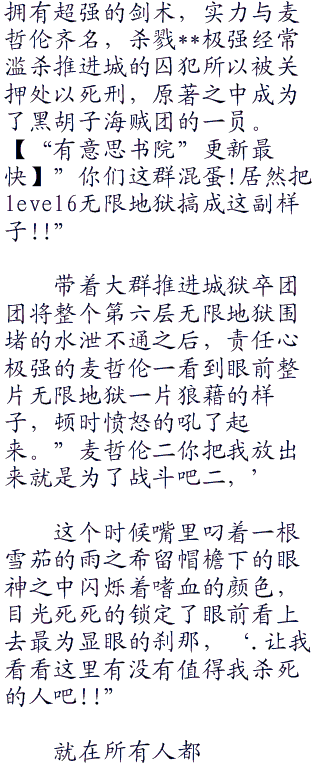 拥有超强的剑术，实力与麦
哲伦齐名，杀戮**极强经常
滥杀推进城的囚犯所以被关
押处以死刑，原著之中成为
了黑胡子海贼团的一员。
【“有意思书院”更新最
快】”你们这群混蛋!居然把
level6无限地狱搞成这副样
子!!”
带着大群推进城狱卒团
团将整个第六层无限地狱围
堵的水泄不通之后，责任心
极强的麦哲伦一看到眼前整
片无限地狱一片狼藉的样
子，顿时愤怒的吼了起
来。”麦哲伦二你把我放出
来就是为了战斗吧二，’
这个时候嘴里叼着一根
雪茄的雨之希留帽檐下的眼
神之中闪烁着嗜血的颜色，
目光死死的锁定了眼前看上
去最为显眼的刹那，‘.让我
看看这里有没有值得我杀死
的人吧!!”
就在所有人都